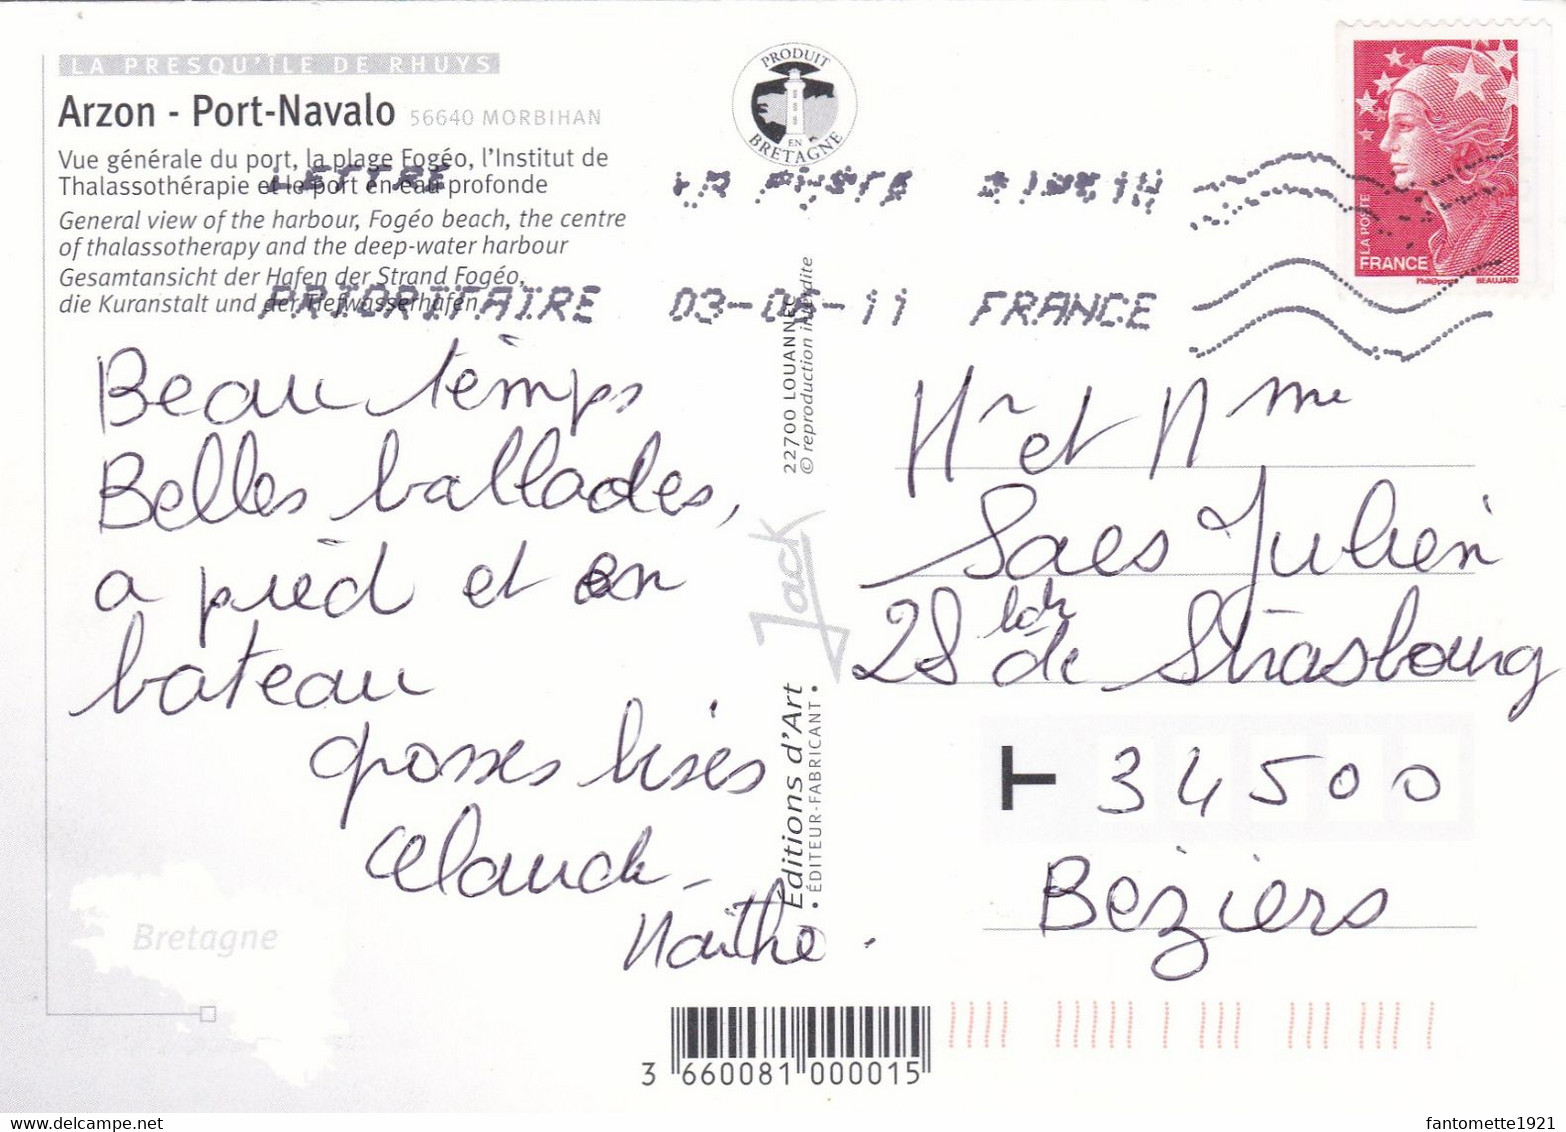 LA PRESQU'ILE DE RHUYS
Arzon - Port-Navalo 56640 MORBIHAN
Vue générale du port, la plage Fogéo, l'Institut de
Thalassothérapie et le port en eau profonde
General view of the harbour, Fogéo beach, the centre
of thalassotherapy and the deep-water harbour
Gesamtansicht der Hafen der Strand Fogéo,
die Kuranstalt und der Tiefwasserhafen
PRODUIT
EN
BRETAGNE
LETTRE LA POSTE
PRIORITAIRE 03-06-11 FRANCE
LA POSTE
FRANCE
Phil@poste BEAUJARD
Beau temps
Belles ballades,
a pied et en
bateau
grosses bises
Claude -
Maïthe .
22700 LOUANNEC
© reproduction interdite
Jack
Éditions d'Art
• ÉDITEUR-FABRICANT •
Mr et Mme
Saes Julien
28 bd de Strasbourg
34500
Béziers
Bretagne
3 660081 000015
fantomette1921